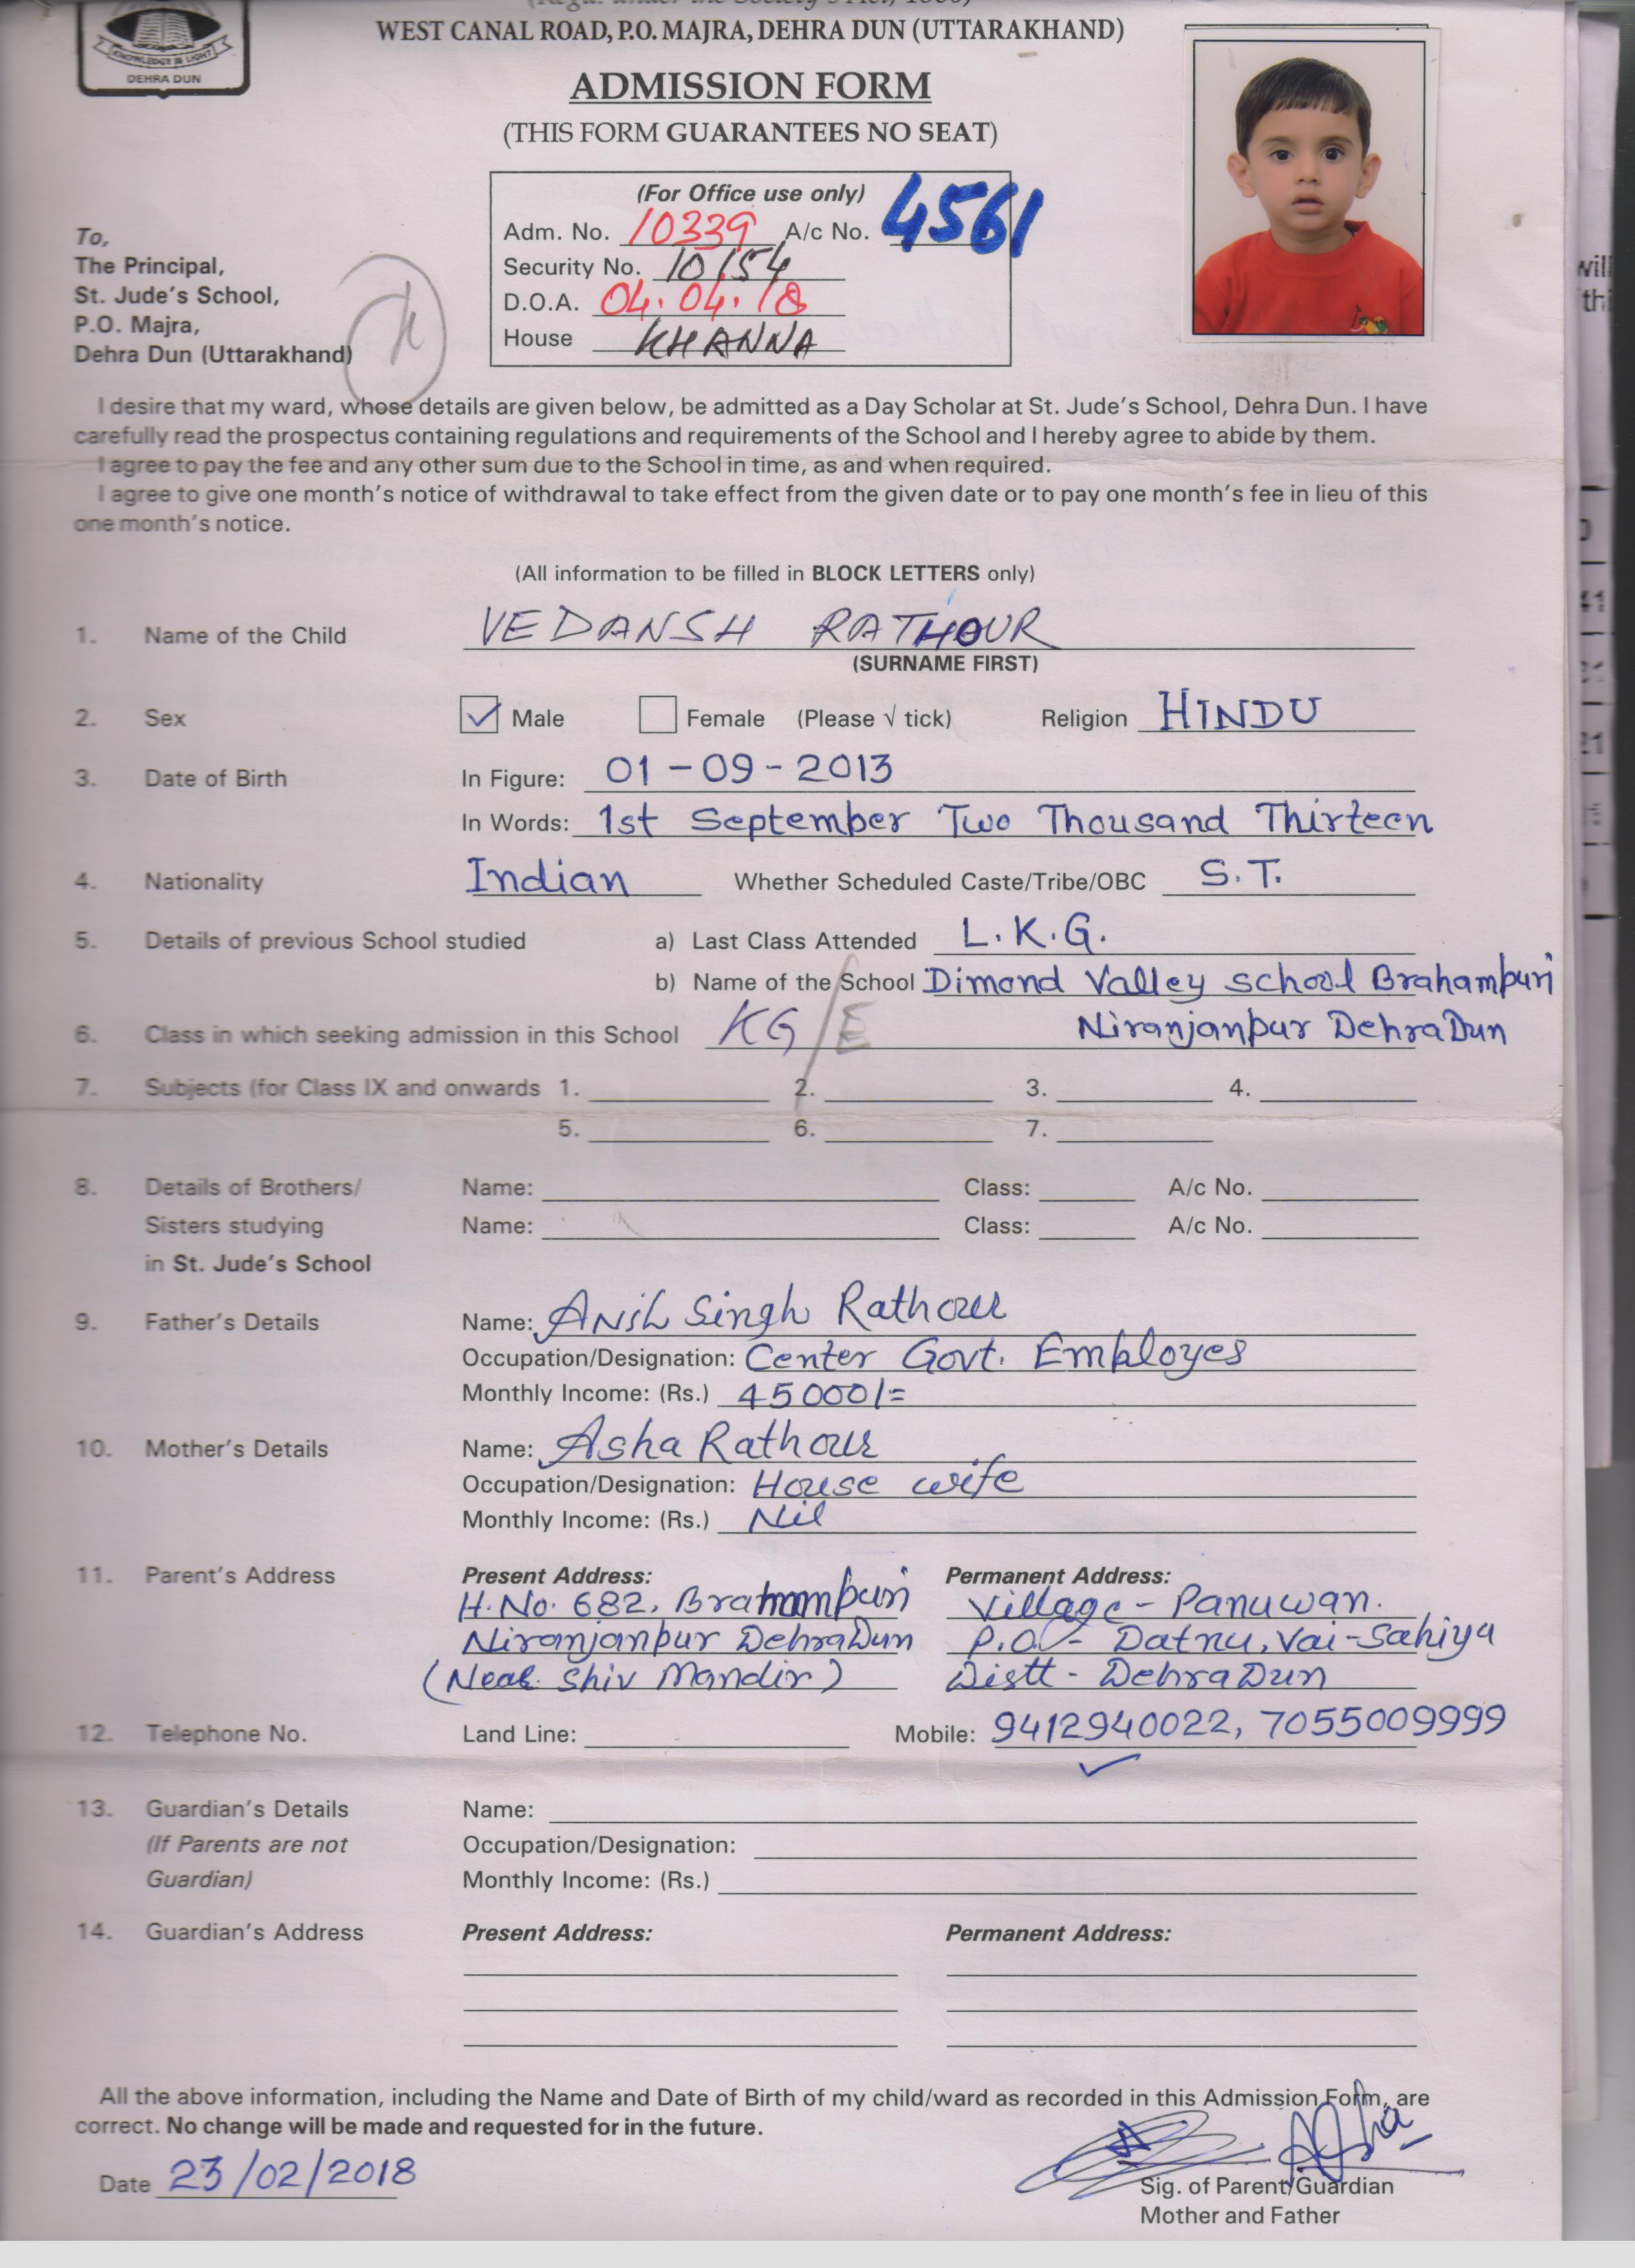 WEST CANAL ROAD, P.O. MAJRA, DEHRA DUN (UTTARAKHAND)
KNOWLEDGE IS LIGHT
DEHRA DUN
ADMISSION FORM
(THIS FORM GUARANTEES NO SEAT)
(For Office use only)
Adm. No. 10339 A/c No. 4561
Security No. 10154
D.O.A. 04.04.18
House KHANNA
To,
The Principal,
St. Jude's School,
P.O. Majra,
Dehra Dun (Uttarakhand)
I desire that my ward, whose details are given below, be admitted as a Day Scholar at St. Jude's School, Dehra Dun. I have
carefully read the prospectus containing regulations and requirements of the School and I hereby agree to abide by them.
I agree to pay the fee and any other sum due to the School in time, as and when required.
I agree to give one month's notice of withdrawal to take effect from the given date or to pay one month's fee in lieu of this
one month's notice.
(All information to be filled in BLOCK LETTERS only)
1. Name of the Child VEDANSH RATHOUR
(SURNAME FIRST)
2. Sex Male Female (Please √ tick) Religion HINDU
3. Date of Birth In Figure: 01-09-2013
In Words: 1st September Two Thousand Thirteen
4. Nationality Indian Whether Scheduled Caste/Tribe/OBC S.T.
5. Details of previous School studied a) Last Class Attended L.K.G.
b) Name of the School Dimond Valley school Brahampuri
Niranjanpur DehraDun
6. Class in which seeking admission in this School KG/E
7. Subjects (for Class IX and onwards 1. 2. 3. 4.
5. 6. 7.
8. Details of Brothers/ Name: Class: A/c No.
Sisters studying Name: Class: A/c No.
in St. Jude's School
9. Father's Details Name: Anil Singh Rathour
Occupation/Designation: Center Govt. Employes
Monthly Income: (Rs.) 45000/=
10. Mother's Details Name: Asha Rathour
Occupation/Designation: House wife
Monthly Income: (Rs.) Nil
11. Parent's Address Present Address: Permanent Address:
H.No. 682, Brahampuri Village - Panuwan.
Niranjanpur DehraDun P.O. - Datnu, Vai-Sahiya
(Near Shiv Mandir) Distt - DehraDun
12. Telephone No. Land Line: Mobile: 9412940022, 7055009999
13. Guardian's Details Name:
(If Parents are not Occupation/Designation:
Guardian) Monthly Income: (Rs.)
14. Guardian's Address Present Address: Permanent Address:
All the above information, including the Name and Date of Birth of my child/ward as recorded in this Admission Form, are
correct. No change will be made and requested for in the future.
Date 23/02/2018
Asha
Sig. of Parent/Guardian
Mother and Father